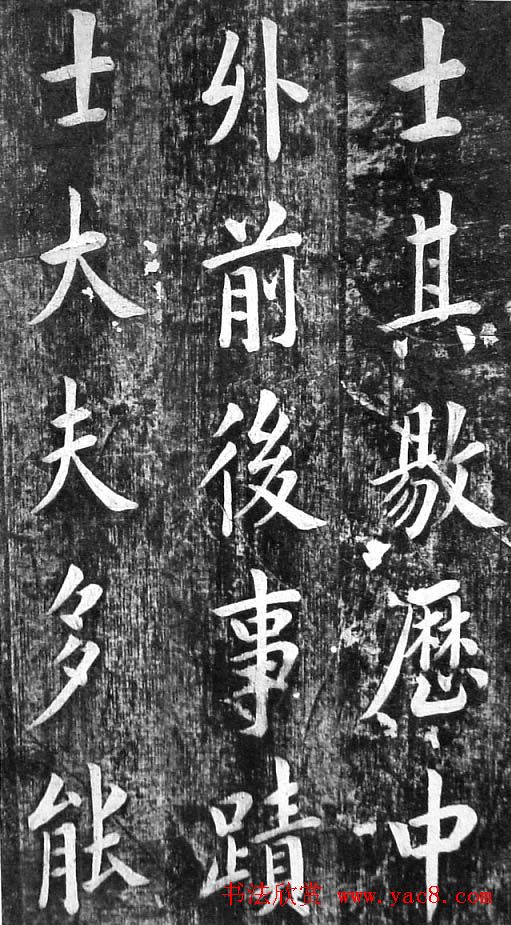 士其敭歷中
外前後事蹟
士大夫多能
书法欣赏 www.yac8.com